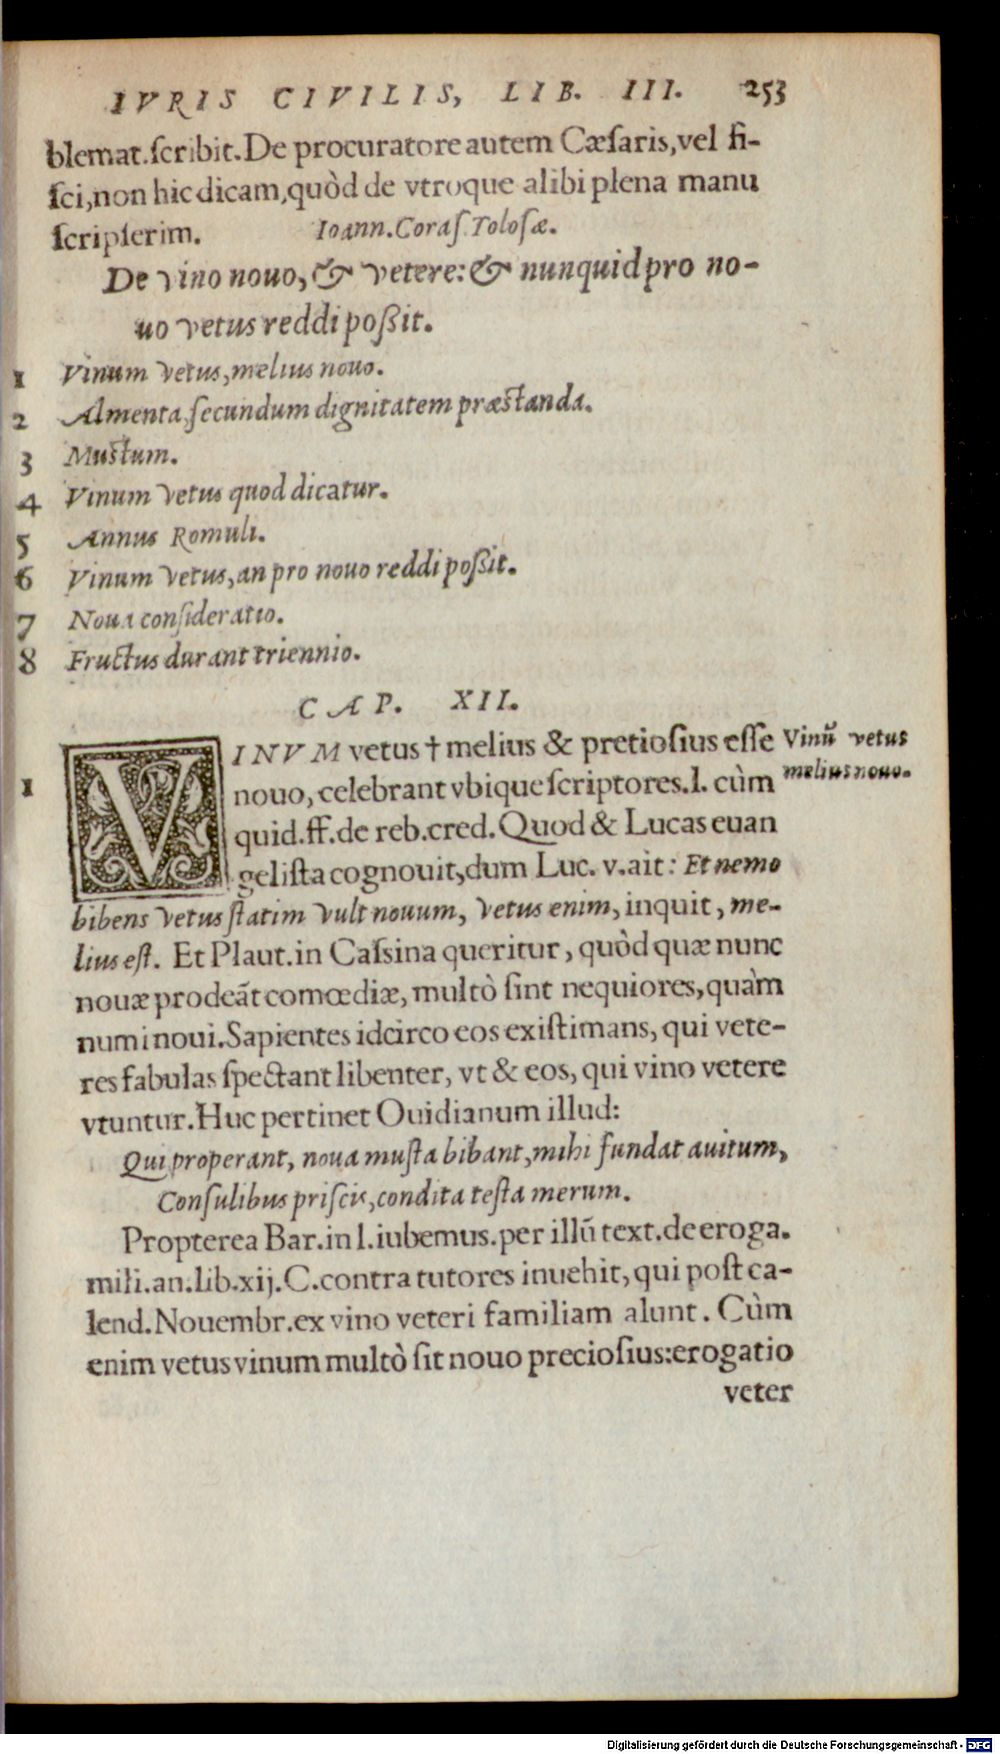 IVRIS CIVILIS, LIB. III. 253
blemat.ſcribit.De procuratore autem Cæſaris,vel fi-
ſci,non hic dicam,quòd de vtroque alibi plena manu
ſcripſerim. Ioann.Coraſ.Toloſæ.
De vino nouo, & vetere: & nunquid pro no-
uo vetus reddi poßit.
1 Vinum vetus,melius nouo.
2 Almenta,ſecundum dignitatem præſtanda.
3 Muſtum.
4 Vinum vetus quod dicatur.
5 Annus Romuli.
6 Vinum vetus,an pro nouo reddi poßit.
7 Noua conſideratio.
8 Fructus durant triennio.
CAP. XII.
1 VINVM vetus † melius & pretioſius eſſe
Vinū vetus
melius nouo.
nouo, celebrant vbique ſcriptores.l. cùm
quid.ff.de reb.cred. Quod & Lucas euan
geliſta cognouit,dum Luc. v.ait: Et nemo
bibens vetus ſtatim vult nouum, vetus enim, inquit, me-
lius eſt. Et Plaut.in Caſsina queritur, quòd quæ nunc
nouæ prodeāt comœdiæ, multò ſint nequiores,quàm
numi noui.Sapientes idcirco eos exiſtimans, qui vete-
res fabulas ſpectant libenter, vt & eos, qui vino vetere
vtuntur.Huc pertinet Ouidianum illud:
Qui properant, noua muſta bibant,mihi fundat auitum,
Conſulibus priſcis,condita teſta merum.
Propterea Bar.in l.iubemus.per illū text.de eroga.
mili.an.lib.xij.C.contra tutores inuehit, qui poſt ca-
lend.Nouembr.ex vino veteri familiam alunt. Cùm
enim vetus vinum multò ſit nouo precioſius:erogatio
veter
Digitalisierung gefördert durch die Deutsche Forschungsgemeinschaft - DFG